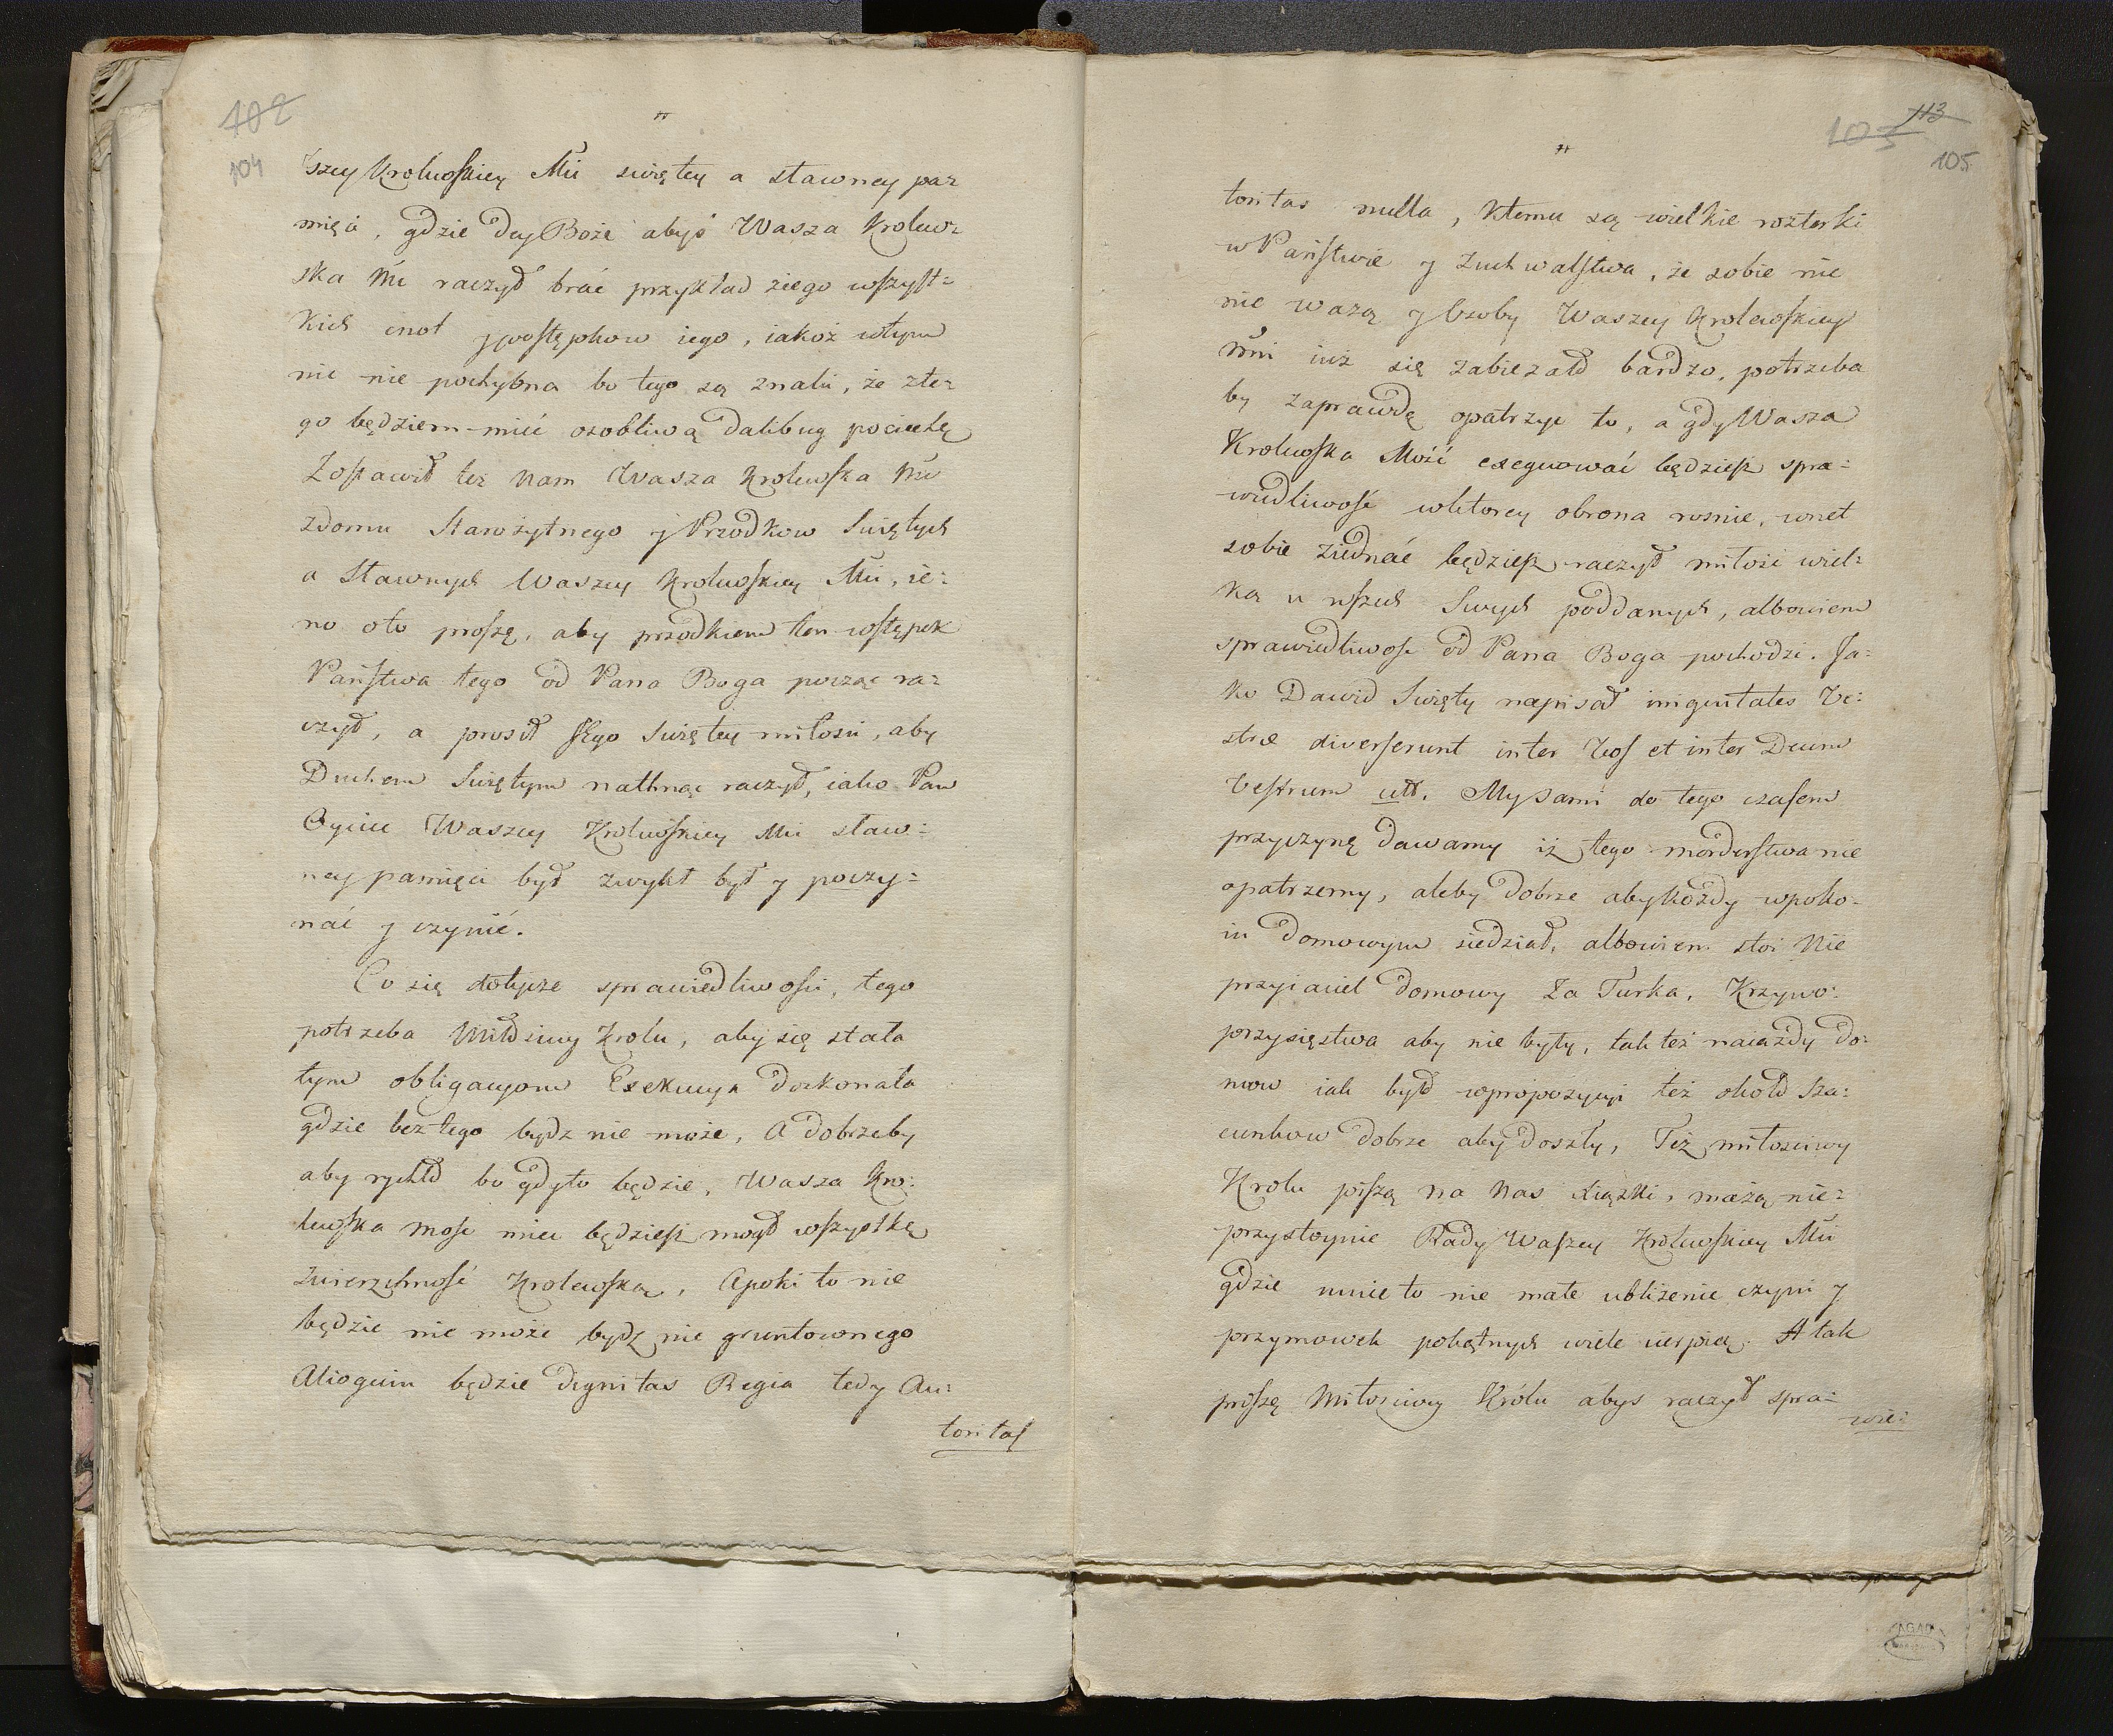 102
104
szey Krolewskiey Mći swiętey a sławney pa=
mięci, gdzie dey Boże abyś Wasza Krolew=
ska Mć raczył brać przykład ziego wszyst=
kich cnot y postępkow iego, iakoż wtym
nic nie pochybna bo tego są znaki, że zte=
go będziem mieć osobliwą dalibug pociechę
Zostawił też nam Wasza Krolewska Mć
zdomu Starożytnego y Przodkow Swiętych
a Sławnych Waszey Krolewskiey Mći, ie=
no oto proszę, aby przodkiem ten wstępek
Państwa tego od Pana Boga począc ra=
czył, a prosił Jego Swiętey miłosci, aby
Duchem Swiętym nathnąc raczył, iako Pan
Oyciec Waszey Krolewskiey Mći sław=
ney pamięci był zwykł był y poczy=
nać y czynić.
Co się dotycze sprawiedliwosci, tego
potrzeba Miłosciwy Krolu, aby się stała
tym obligacyom Exekucya doskonała
gdzie bez tego bydz nie może, A dobrzeby
aby rychło bo gdyto będzie, Wasza Kro=
lewska mosc miec będziesz mogł wszystkę
zwierzchność Krolewską, Apoki to nie
będzie nie może bydz nic gruntownego
Alioquin będzie dignitas Regia tedy Au=
toritas
113
103
105
toritas nulla, Ktemu są wielkie rozterki
w Państwie y Zuchwalstwa, że sobie nic
nie ważą y Osoby Waszey Krolewskiey
Mći iuż się zabiezało bardzo, potrzeba
by zaprawdę opatrzyc to, a gdy Wasza
Krolewska Mość exequować będziesz spra=
wiedliwość wktorey obrona rosnie, wnet
sobie ziednać będziesz raczył miłość wiel=
ką u wszech Swych poddanych, albowiem
sprawiedliwosc od Pana Boga pochodzi. Ja=
ko Dawid Swięty napisał iniquitates Ve=
stre diverserunt inter Vos et inter Deum
Vestrum utt. My sami do tego czasem
przyczynę dawamy iż tego morderstwa nie
opatrzemy, aleby dobrze aby kożdy wpoko=
iu domowym siedział, albowiem stoi Nie
przyiaciel domowy za Turka. Krzywo=
przysięstwa aby nie były, tak też naiazdy do=
mow iak było wpropozycyi też około Sza=
cunkow dobrze aby doszły, Też miłosciwy
Krolu piszą na nas xiążki, mażą nie=
przystoynie Rady Waszey Krolewskiey Mći
gdzie mnie to nie małe ubliżenie czyni y
przymowek pokątnych wiele cierpię. A tak
proszę Miłosciwy Królu abys raczył spra=
wie=
AGAD